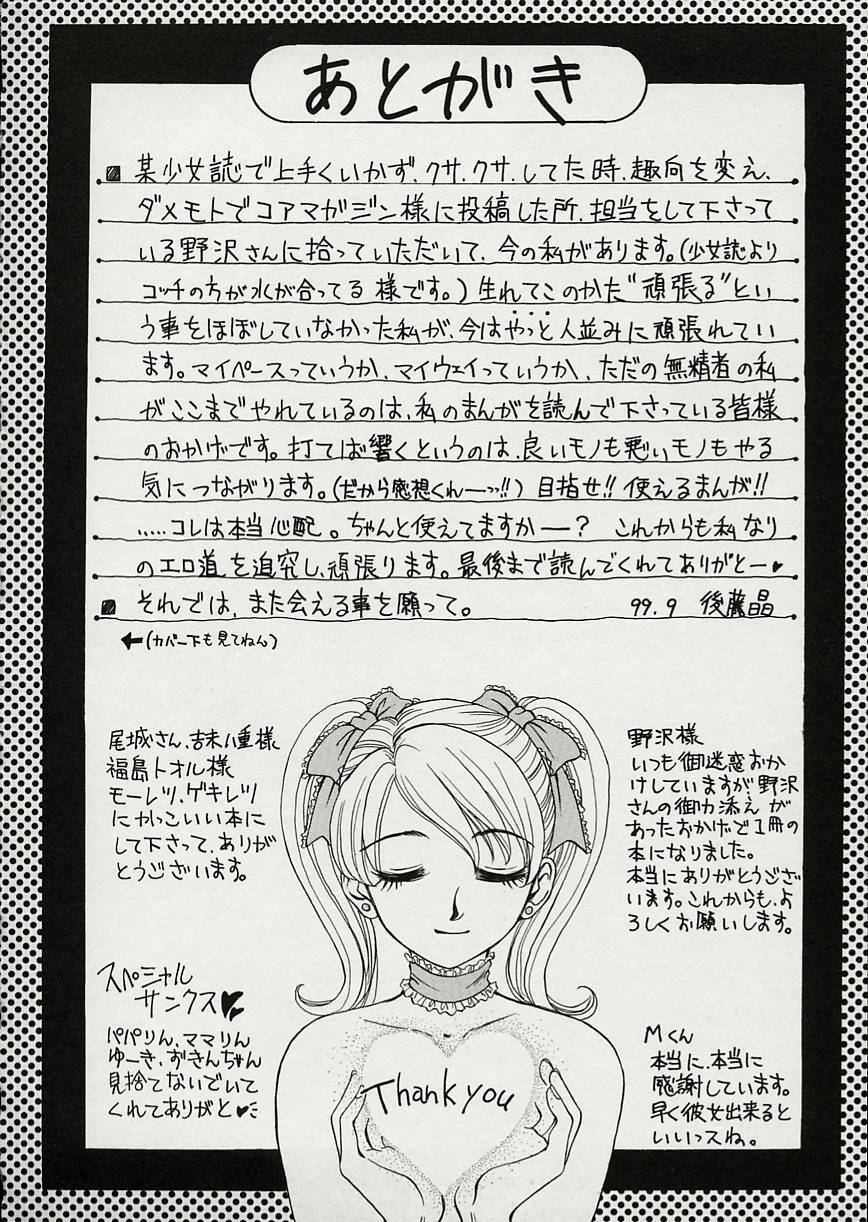 あとがき
某少女誌で上手くいかず、クサ、クサ、してた時、趣向を変え、
ダメモトでコアマガジン様に投稿した所、担当をして下さって
いる野沢さんに拾っていただいて、今の私があります。(少女誌より
コッチの方が水が合ってる様です。)生れてこのかた“頑張る”とい
う事をほぼしていなかった私が、今はやっと人並みに頑張れてい
ます。マイペースっていうか、マイウェイっていうか、ただの無精者の私
がここまでやれているのは、私のまんがを読んで下さっている皆様
のおかげです。打てば響くというのは、良いモノも悪いモノもやる
気につながります。(だから感想くれーっ!!) 目指せ!! 使えるまんが!!
.....コレは本当心配。ちゃんと使えてますかー? これからも私なり
のエロ道を追究し、頑張ります。最後まで読んでくれてありがとー♥
それでは、また会える事を願って。 99.9 後藤晶
←(カバー下も見てねん)
尾城さん、吉未八重様
福島トオル様
モーレツ、ゲキレツ
にかっこいい本に
して下さって、ありが
とうございます。
野沢様
いつも御迷惑おか
けしていますが、野沢
さんの御力添えが
あったおかげで1冊の
本になりました。
本当にありがとうござい
います。これからも、よ
ろしくお願いします。
スペシャル
サンクス♥
パパりん、ママりん
ゆーき、おきんちゃん
見捨てないでいて
くれてありがと♥
Mくん
本当に、本当に
感謝しています。
早く彼女出来ると
いいっスね。
Thank you